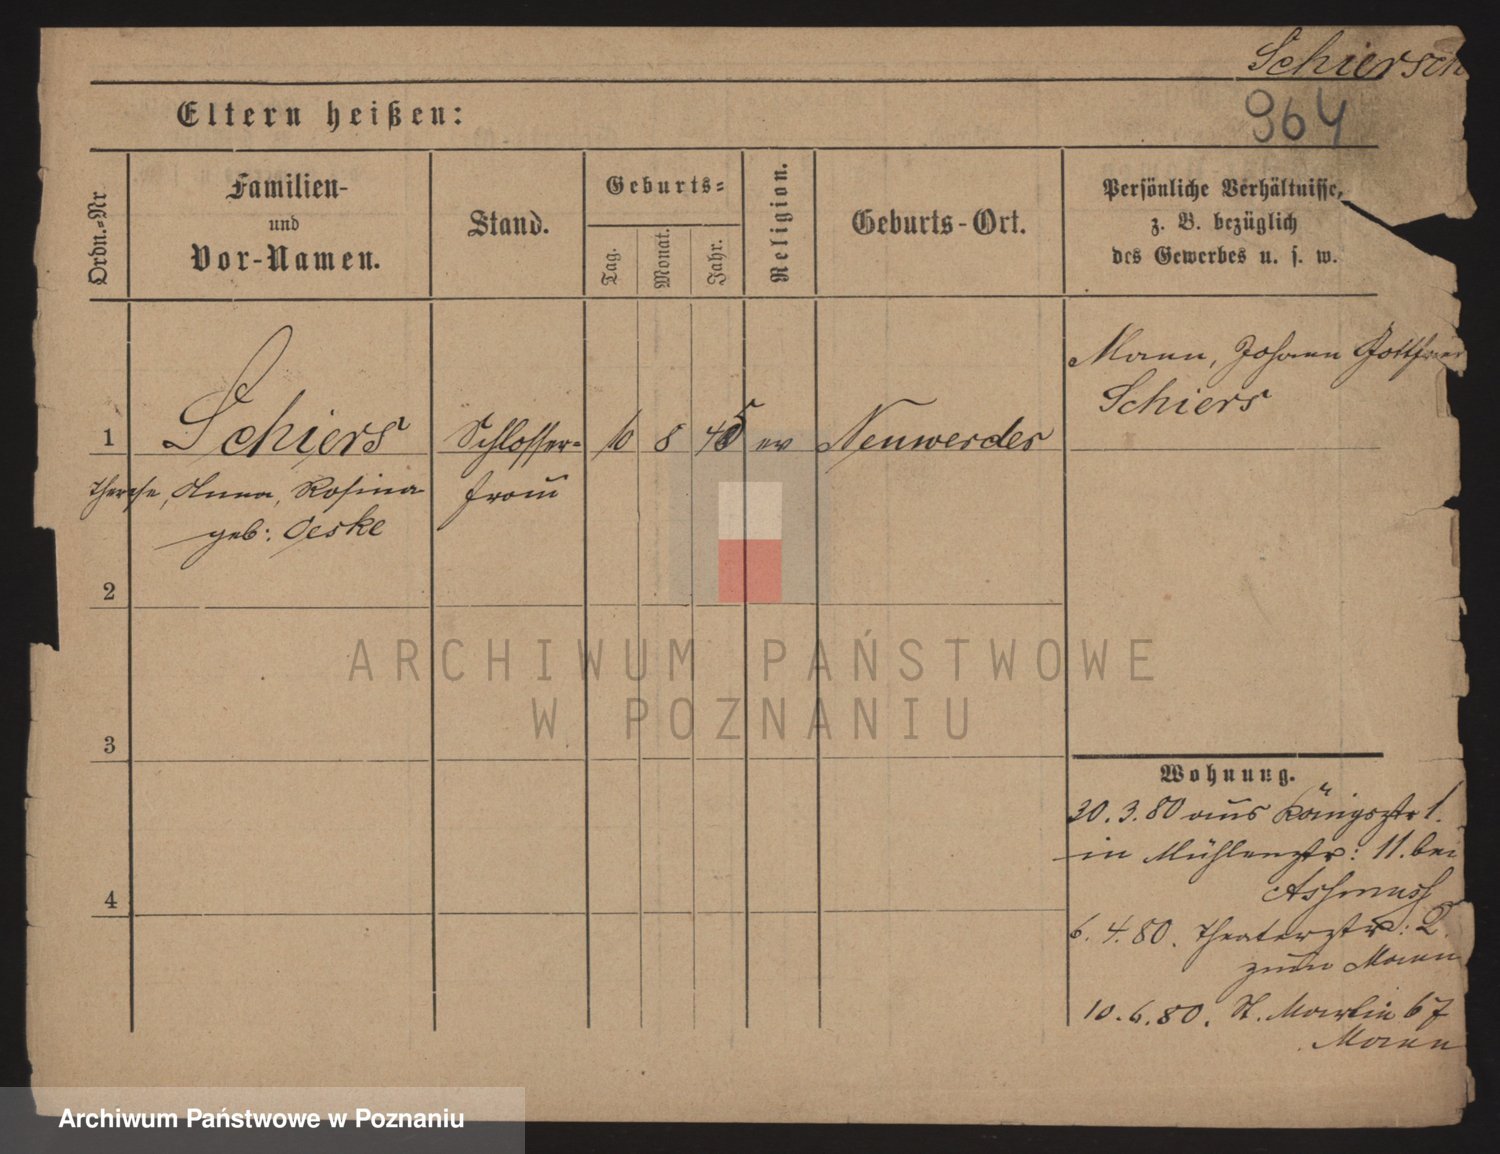 Schiersch
964
Eltern heißen:
Ordn.-Nr
Familien-
und
Vor-Namen.
Stand.
Geburts-
Tag.
Monat.
Jahr.
Religion.
Geburts-Ort.
Persönliche Verhältnisse,
z. B. bezüglich
des Gewerbes u. s. w.
Mann, Johann Gottfried
Schiers
1 Schiers Schlosser- 10 8 45 ev Neuwerder
Therese, Anna, Rosina frau
geb: Oeske
2
ARCHIWUM PAŃSTWOWE
W POZNANIU
3
Wohnung.
30.3.80 aus Königsstr 1.
in Mühlenstr: 11. bei
Assmuss
4
6. 4. 80. Theaterstr: 2.
zum Mann
10. 6. 80. St. Martin 67
Mann
Archiwum Państwowe w Poznaniu